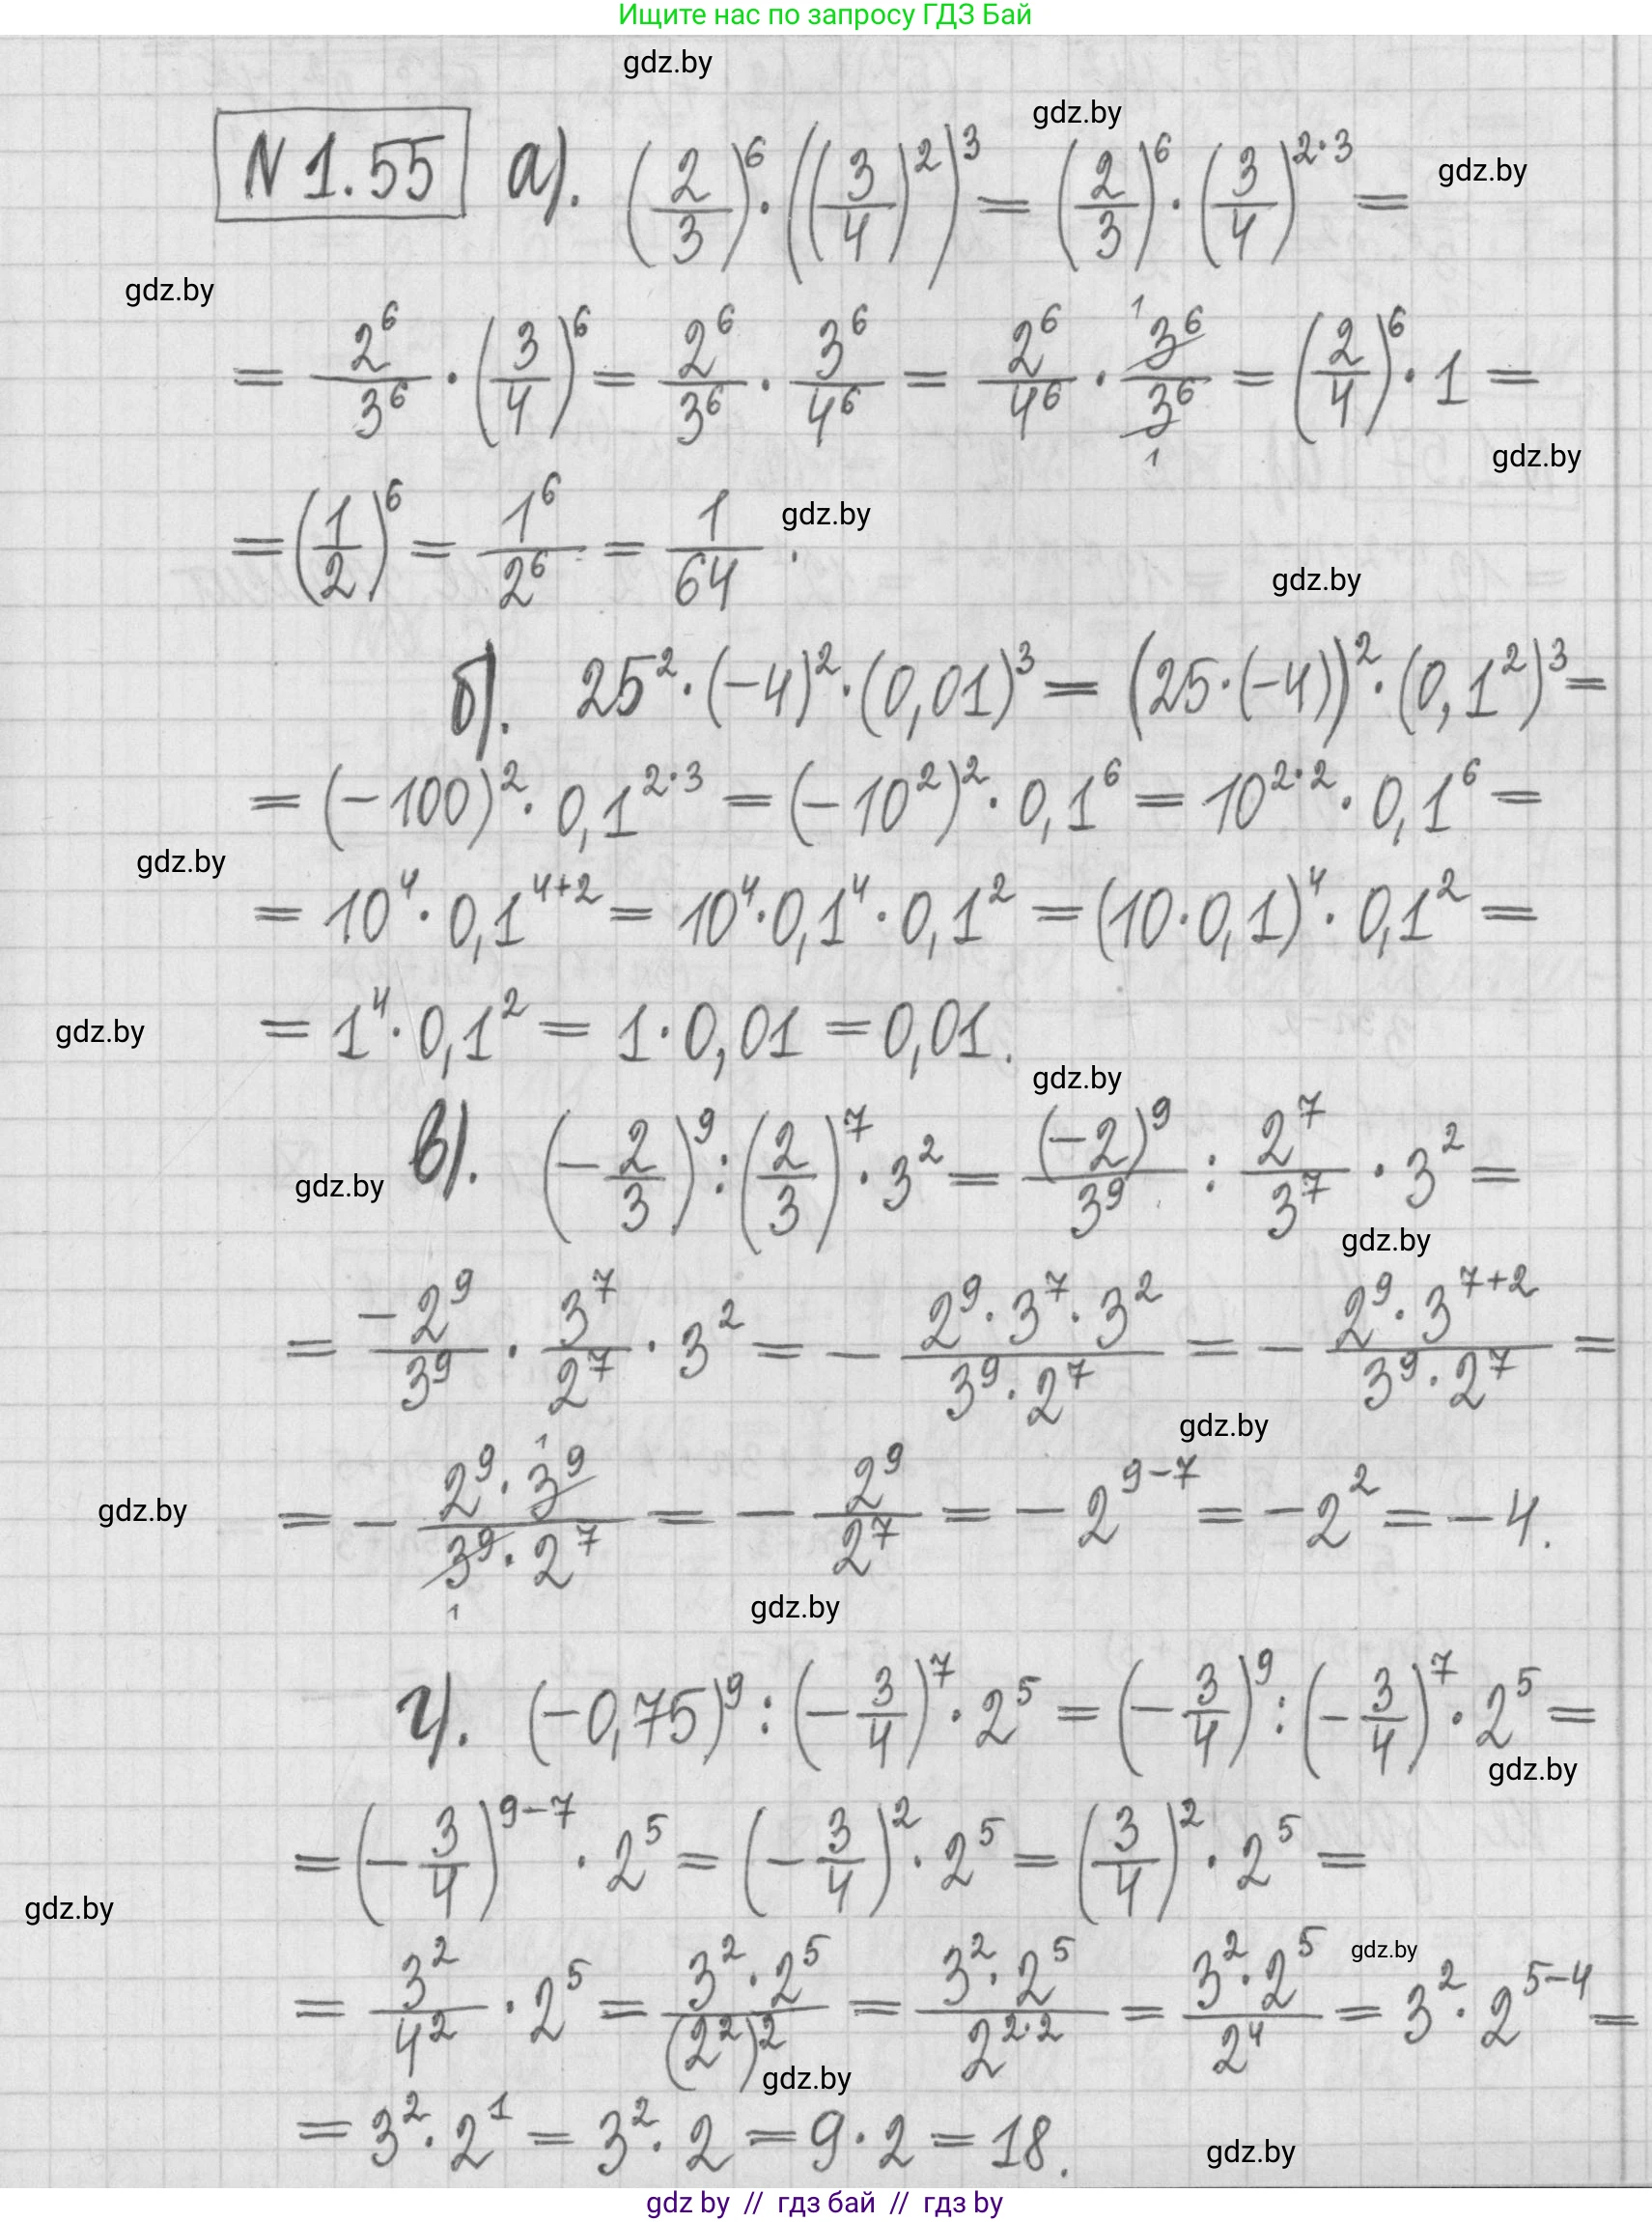 Ищите нас по запросу ГДЗ Бай
gdz.by
gdz.by
gdz.by
N 1.55 а). (2/3)^6 · ((3/4)^2)^3 = (2/3)^6 · (3/4)^{2·3} =
gdz.by
= 2^6/3^6 · (3/4)^6 = 2^6/3^6 · 3^6/4^6 = 2^6/4^6 · 3^6/3^6 = (2/4)^6 · 1 =
gdz.by
= (1/2)^6 = 1^6/2^6 = 1/64.
gdz.by
gdz.by
б). 25^2 · (-4)^2 · (0,01)^3 = (25 · (-4))^2 · (0,1^2)^3 =
= (-100)^2 · 0,1^{2·3} = (-10^2)^2 · 0,1^6 = 10^{2·2} · 0,1^6 =
gdz.by
= 10^4 · 0,1^{4+2} = 10^4 · 0,1^4 · 0,1^2 = (10 · 0,1)^4 · 0,1^2 =
gdz.by
= 1^4 · 0,1^2 = 1 · 0,01 = 0,01.
gdz.by
в). (-2/3)^9 : (2/3)^7 · 3^2 = (-2)^9/3^9 : 2^7/3^7 · 3^2 =
gdz.by
gdz.by
= -2^9/3^9 · 3^7/2^7 · 3^2 = - (2^9 · 3^7 · 3^2)/(3^9 · 2^7) = - (2^9 · 3^{7+2})/(3^9 · 2^7) =
gdz.by
gdz.by
= - (2^9 · 3^9)/(3^9 · 2^7) = - 2^9/2^7 = - 2^{9-7} = -2^2 = -4.
gdz.by
г). (-0,75)^9 : (-3/4)^7 · 2^5 = (-3/4)^9 : (-3/4)^7 · 2^5 =
gdz.by
= (-3/4)^{9-7} · 2^5 = (-3/4)^2 · 2^5 = (3/4)^2 · 2^5 =
gdz.by
gdz.by
= 3^2/4^2 · 2^5 = (3^2 · 2^5)/(2^2)^2 = (3^2 · 2^5)/2^{2·2} = (3^2 · 2^5)/2^4 = 3^2 · 2^{5-4} =
gdz.by
= 3^2 · 2^1 = 3^2 · 2 = 9 · 2 = 18.
gdz.by
gdz by // гдз бай // гдз by